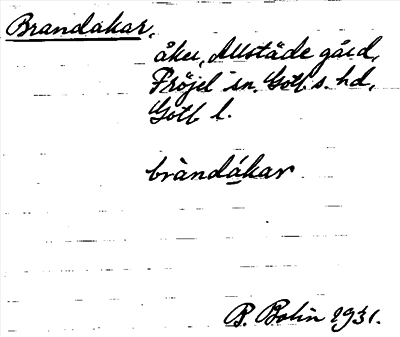 Brandåkar,
åker, Allstäde gård,
Fröjel sn. Gotl. s. hd,
Gotl l.
bràndákar
B. Bolin 1931.